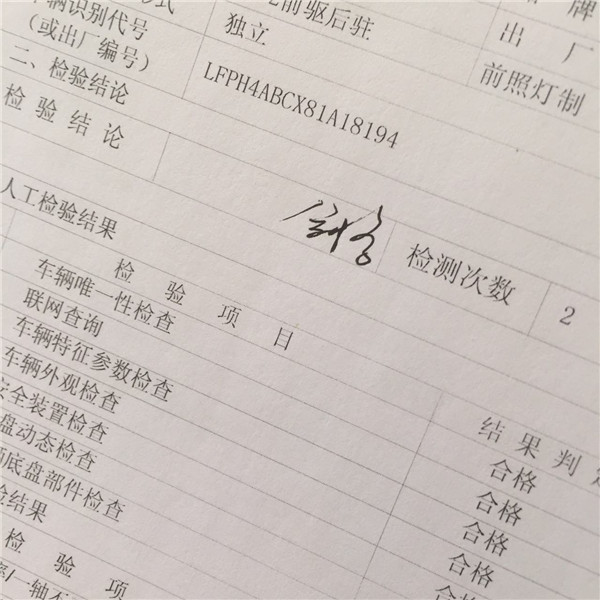 形式 前驱后驻 牌
车辆识别代号 独立 出 厂
(或出厂编号) LFPH4ABCX81A18194 前照灯制
二、检验结论
检 验 结 论 合格 检测次数 2
人工检验结果
检 验 项 目 结 果 判 定
车辆唯一性检查 合格
联网查询 合格
车辆特征参数检查 合格
车辆外观检查 合格
安全装置检查 合格
底盘动态检查
车辆底盘部件检查
检验结果
检 验 项
一轴